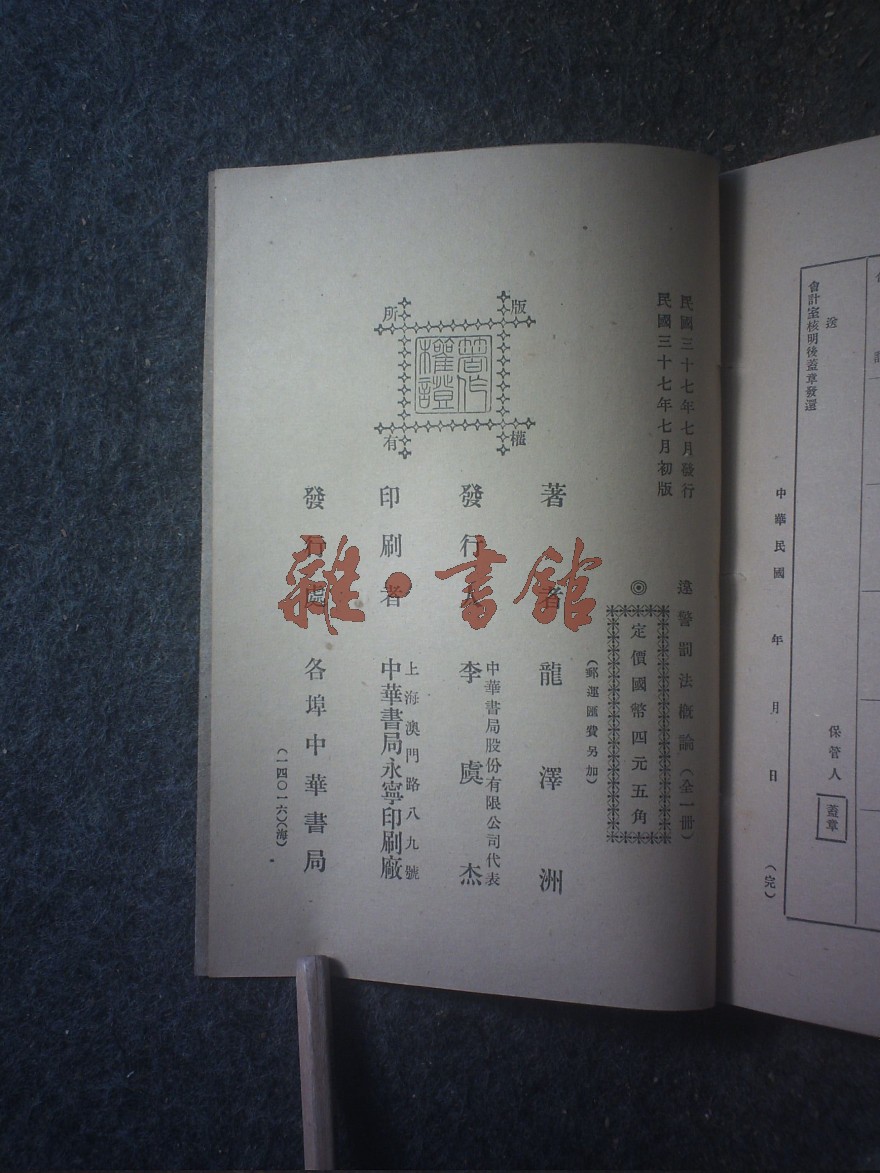 會計室核明後蓋章發還
送
中華民國 年 月 日
保管人 蓋章
(完)
民國三十七年七月發行
民國三十七年七月初版
違警罰法概論(全一冊)
◎定價國幣四元五角
(郵運匯費另加)
版權所有
著作權證
著者 龍澤洲
發行人 李虞杰
中華書局股份有限公司代表
印刷者 中華書局永寧印刷廠
上海澳門路八九號
發行處 各埠中華書局
(一四〇一六)(海)
雜·書館